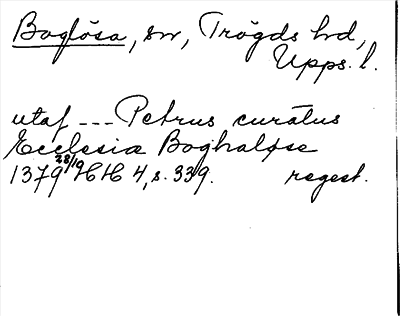 Boglösa, sn, Trögds hd,
Upps. l.
utaf --- Petrus curatus
Ecclesiæ Boghaløse
1379 28/19 HH 4, s. 339. regest.